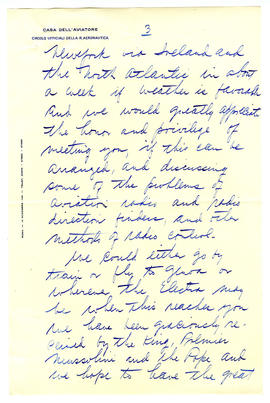 CASA DELL'AVIATORE
CIRCOLO UFFICIALI DELLA R. AERONAUTICA
3
Newyork via Ireland and
the North Atlantic in about
a week if weather is favorab
And we would greatly appreciate
the honor and privilege of
meeting you if this can be
arranged, and discussing
some of the problems of
aviation radio and radio
direction finders, and other
methods of radio control.
We could either go by
train or fly to Genoa or
wherever the Electra may
be when this reaches you
We have been graciously re-
ceived by the King, Premier
Mussolini and the Pope and
we hope to have the great